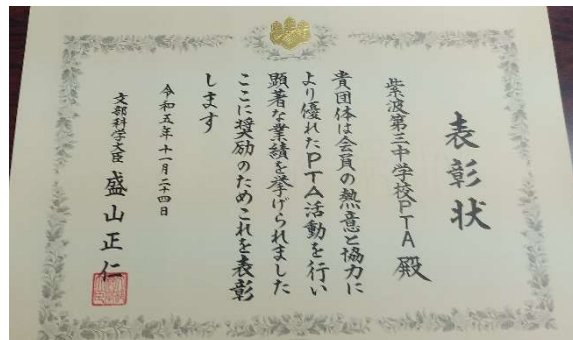 表彰状
紫波第三中学校PTA 殿
貴団体は会員の熱意と協力に
より優れたPTA活動を行い
顕著な業績を挙げられました
ここに奨励のためこれを表彰
します
令和五年十一月二十四日
文部科学大臣 盛山正仁